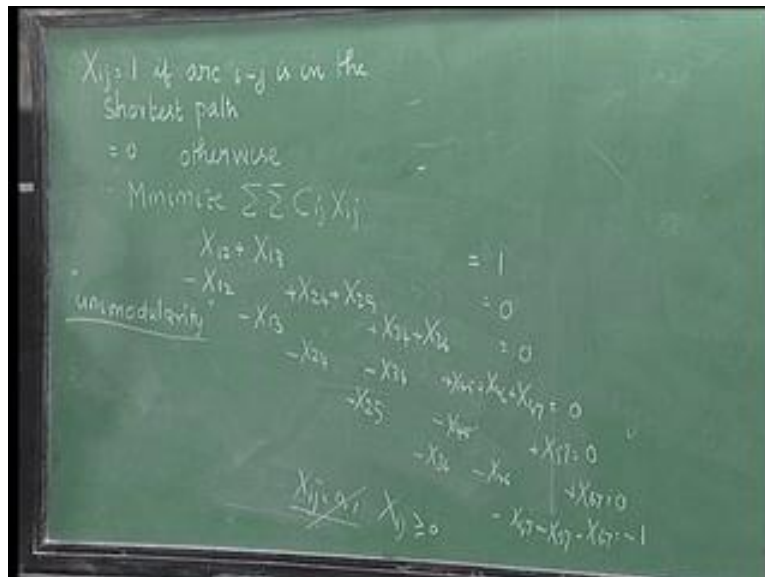 Xij = 1 if arc i-j is in the
Shortest path
= 0 otherwise
Minimize ΣΣ Cij Xij
X12 + X13 = 1
-X12 +X24+X25 = 0
"unimodularity" -X13 +X34+X36 = 0
-X24 -X34 +X45+X46+X47 = 0
-X25 -X45 +X57=0
-X36 -X46 +X67=0
-X47-X57-X67=-1
Xij=0,1 Xij≥0